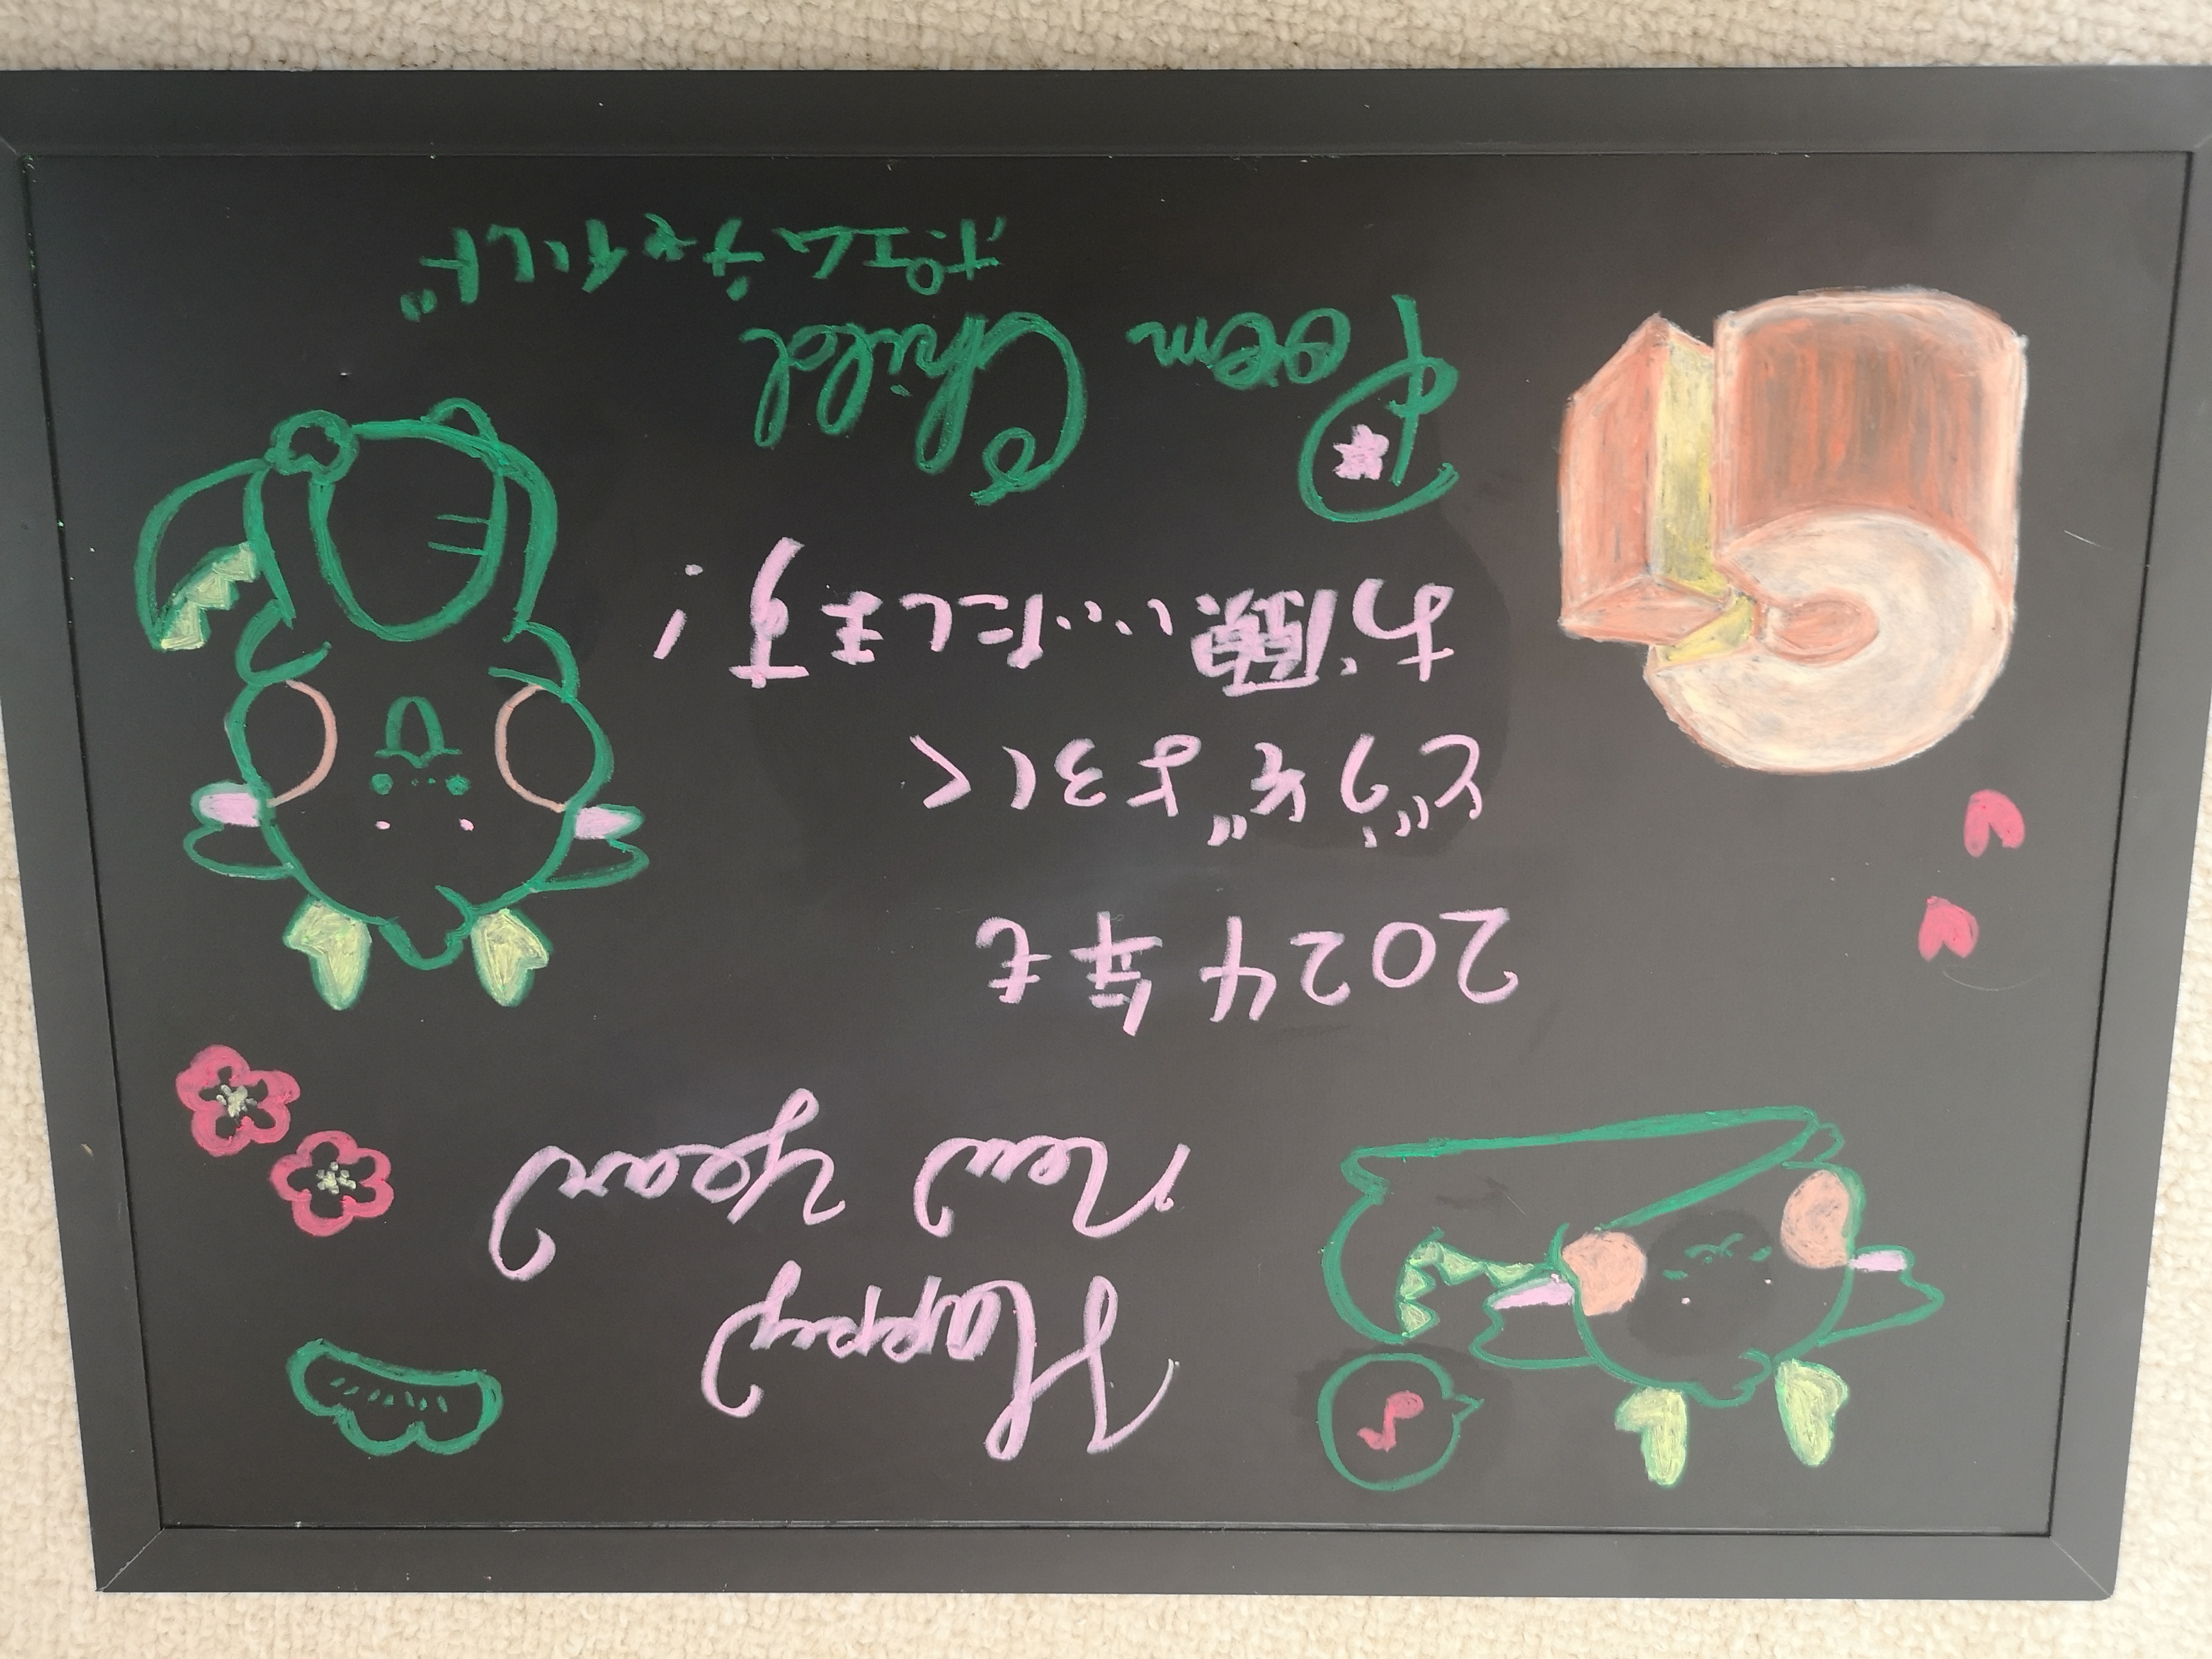 Happy
new year
2024年も
どうぞよろしく
お願いいたします!
Poem Child
ポエムチャイルド